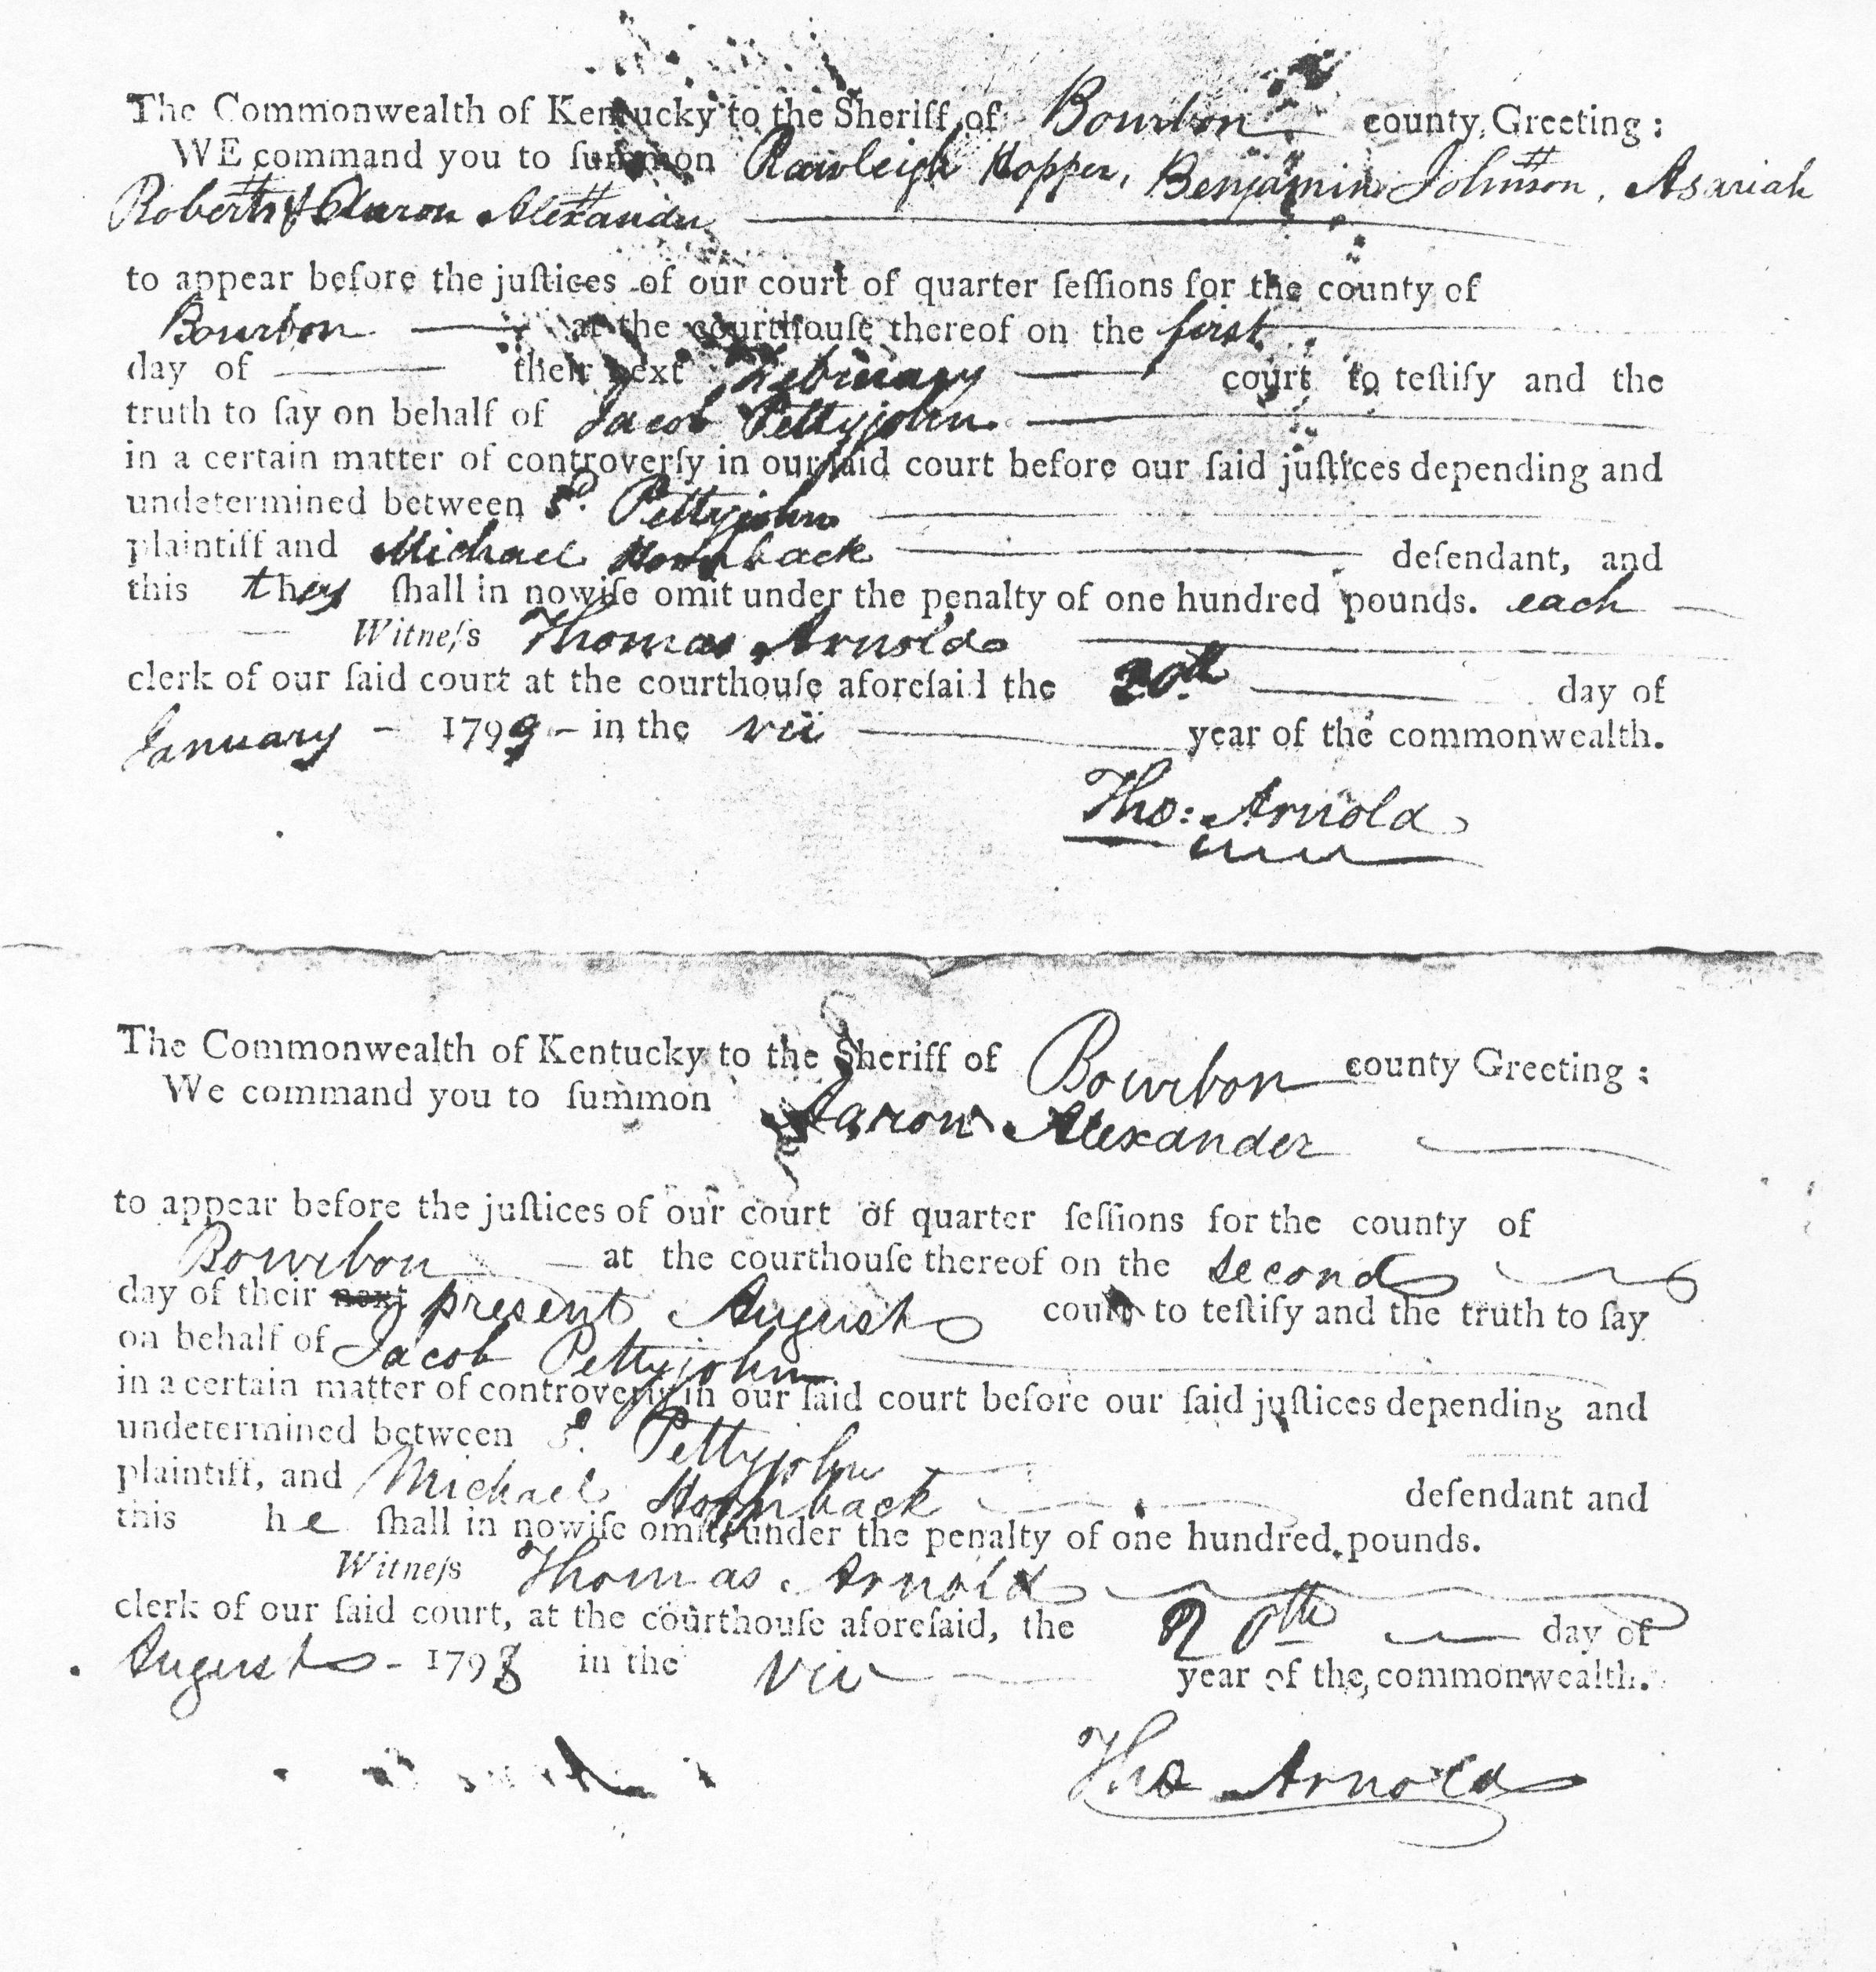 The Commonwealth of Kentucky to the Sheriff of Bourbon county, Greeting:
WE command you to ſummon Rawleigh Hopper, Benjamin Johnson, Asariah
Roberts & Aaron Alexander
to appear before the juſtices of our court of quarter ſeſſions for the county of
Bourbon at the courthouſe thereof on the first
day of their next February court to teſtify and the
truth to ſay on behalf of Jacob Pettyjohn
in a certain matter of controverſy in our ſaid court before our ſaid juſtices depending and
undetermined between sd. Pettyjohn
plaintiff and Michael Hornback defendant, and
this they ſhall in nowiſe omit under the penalty of one hundred pounds. each
Witneſs Thomas Arnold
clerk of our ſaid court at the courthouſe aforeſaid the 20th day of
January - 1799 - in the vii year of the commonwealth.
Tho: Arnold
The Commonwealth of Kentucky to the Sheriff of Bourbon county Greeting:
We command you to ſummon Aaron Alexander
to appear before the juſtices of our court of quarter ſeſſions for the county of
Bourbon at the courthouſe thereof on the second
day of their next present August court to teſtify and the truth to ſay
on behalf of Jacob Pettyjohn
in a certain matter of controverſy in our ſaid court before our ſaid juſtices depending and
undetermined between sd. Pettyjohn
plaintiff, and Michael Hornback defendant and
this he ſhall in nowiſe omit under the penalty of one hundred pounds.
Witneſs Thomas Arnold
clerk of our ſaid court, at the courthouſe aforeſaid, the 20th day of
August - 1798 in the vii year of the commonwealth.
Tho Arnold